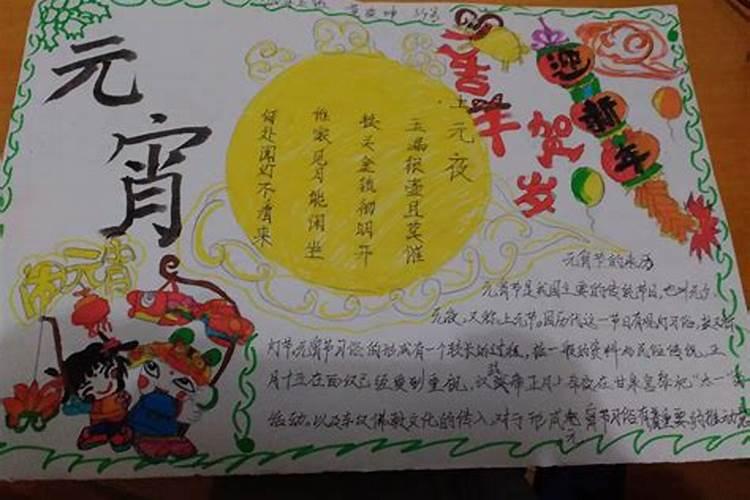 元
宵
闹元宵
上元夜
玉漏银壶且莫催
铁关金锁彻明开
谁家见月能闲坐
何处闻灯不看来
喜羊
贺岁
迎新年
元宵节的来历
元宵节是我国主要的传统节日,也叫元夕、
元夜,又称上元节。因历代这一节日有观灯习俗,故又称
灯节。元宵节习俗的形成有一个较长的过程,据一般的资料与民俗传说,正
月十五在西汉已经受到重视,汉武帝正月上辛夜在甘泉宫祭祀“太一”
活动。以及东汉佛教文化的传入,对于形成元宵节习俗有着重要的推动意